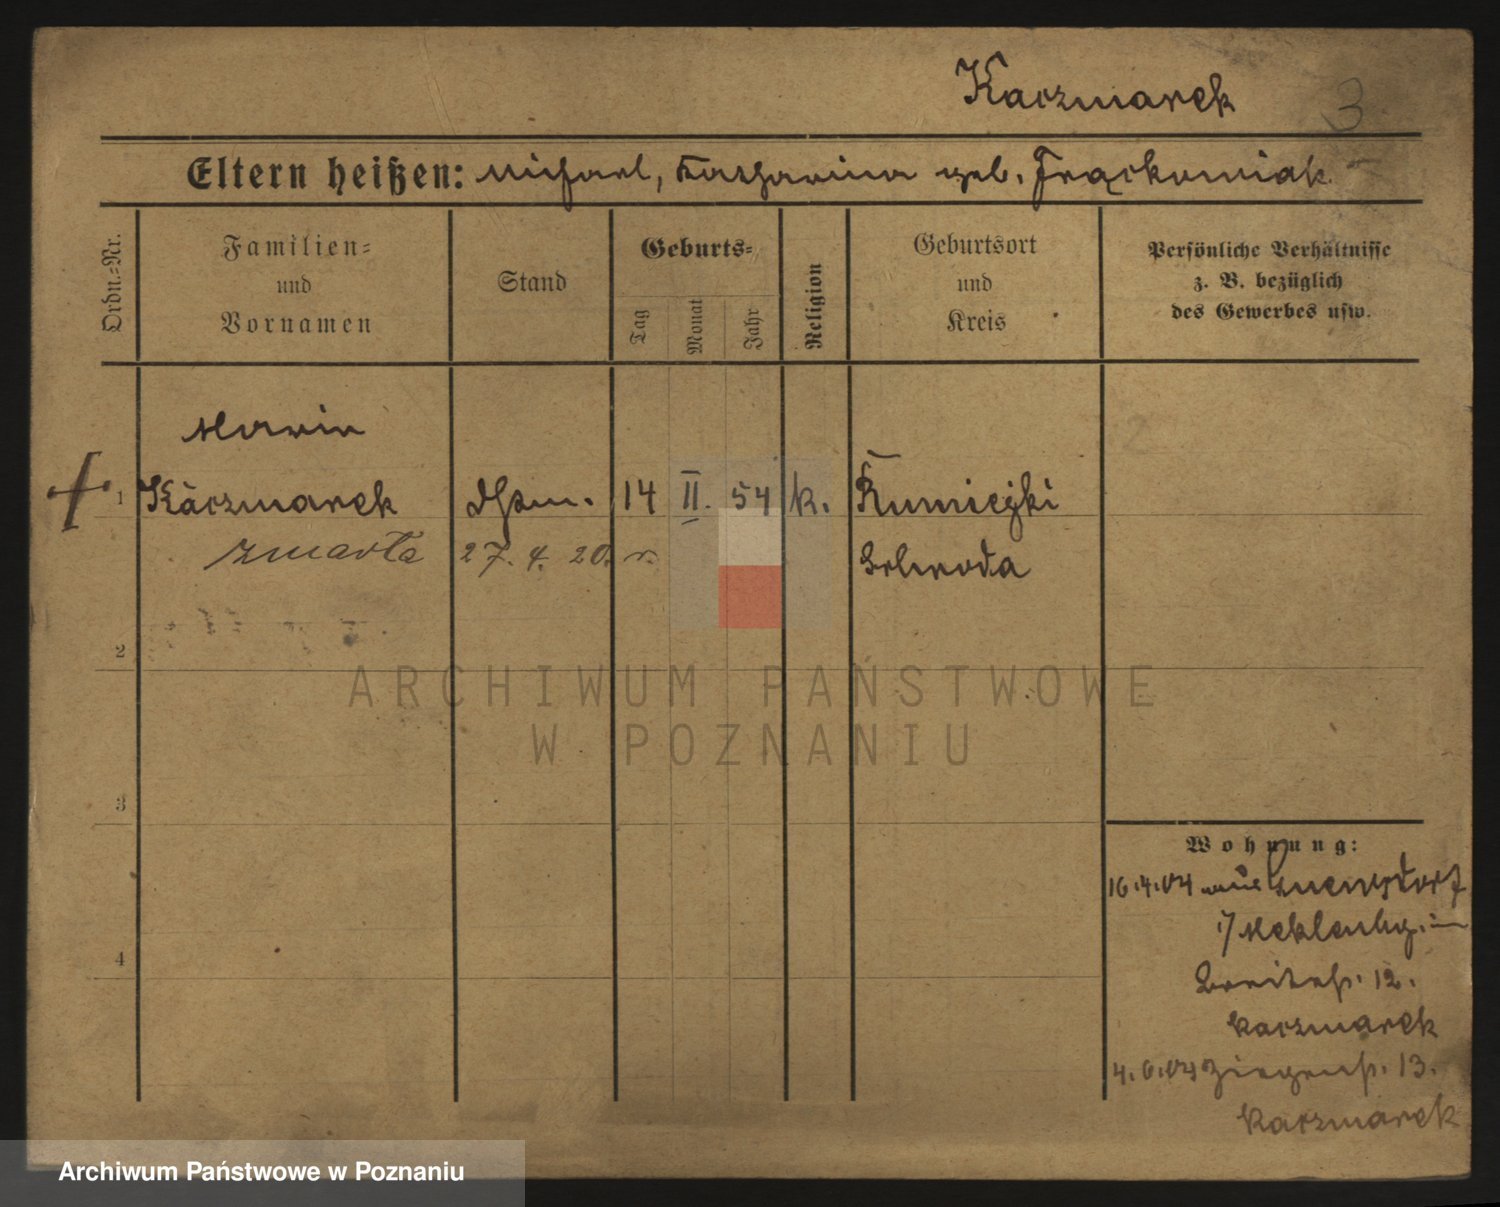 Kaczmarek 3
Eltern heißen: Michael, Katharina geb. Frąckowiak
Ordn.=Nr.
Familien=
und
Vornamen
Stand
Geburts=
Tag
Monat
Jahr
Religion
Geburtsort
und
Kreis
Persönliche Verhältnisse
z. B. bezüglich
des Gewerbes usw.
2
Maria
1 Kaczmarek 14 II. 54 k. Rumiejki
zmarła 27. 4. 20. r. Schroda
2
3
4
ARCHIWUM PAŃSTWOWE
W POZNANIU
Wohnung:
16.4.04 aus
i/ Meklenbg. in
Breitestr. 12.
Kaczmarek
4.6.04 Ziegenstr. 13.
Kaczmarek
Archiwum Państwowe w Poznaniu